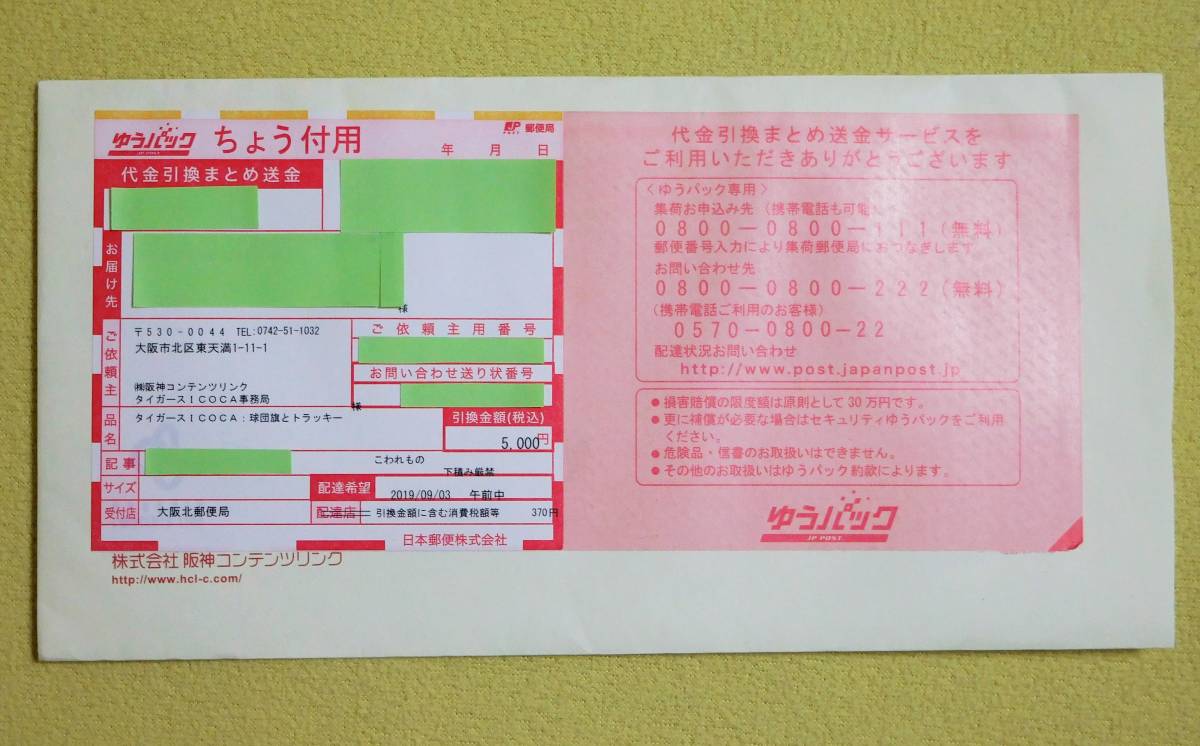 ゆうパック ちょう付用
JP POST 郵便局
年 月 日
代金引換まとめ送金
お届け先
様
ご依頼主
〒530-0044 TEL:0742-51-1032
大阪市北区東天満1-11-1
㈱阪神コンテンツリンク
タイガースICOCA事務局
様
ご依頼主用番号
お問い合わせ送り状番号
品名
タイガースICOCA:球団旗とトラッキー
引換金額(税込)
5,000円
記事
こわれもの
下積み厳禁
サイズ
配達希望
2019/09/03 午前中
受付店
大阪北郵便局
配達店
引換金額に含む消費税額等 370円
日本郵便株式会社
株式会社 阪神コンテンツリンク
http://www.hcl-c.com/
代金引換まとめ送金サービスを
ご利用いただきありがとうございます
〈ゆうパック専用〉
集荷お申込み先(携帯電話も可能)
0800-0800-111(無料)
郵便番号入力により集荷郵便局におつなぎします
お問い合わせ先
0800-0800-222(無料)
(携帯電話ご利用のお客様)
0570-0800-22
配達状況お問い合わせ
http://www.post.japanpost.jp
●損害賠償の限度額は原則として30万円です。
●更に補償が必要な場合はセキュリティゆうパックをご利用
ください。
●危険品・信書のお取扱いはできません。
●その他のお取扱いはゆうパック約款によります。
ゆうパック
JP POST